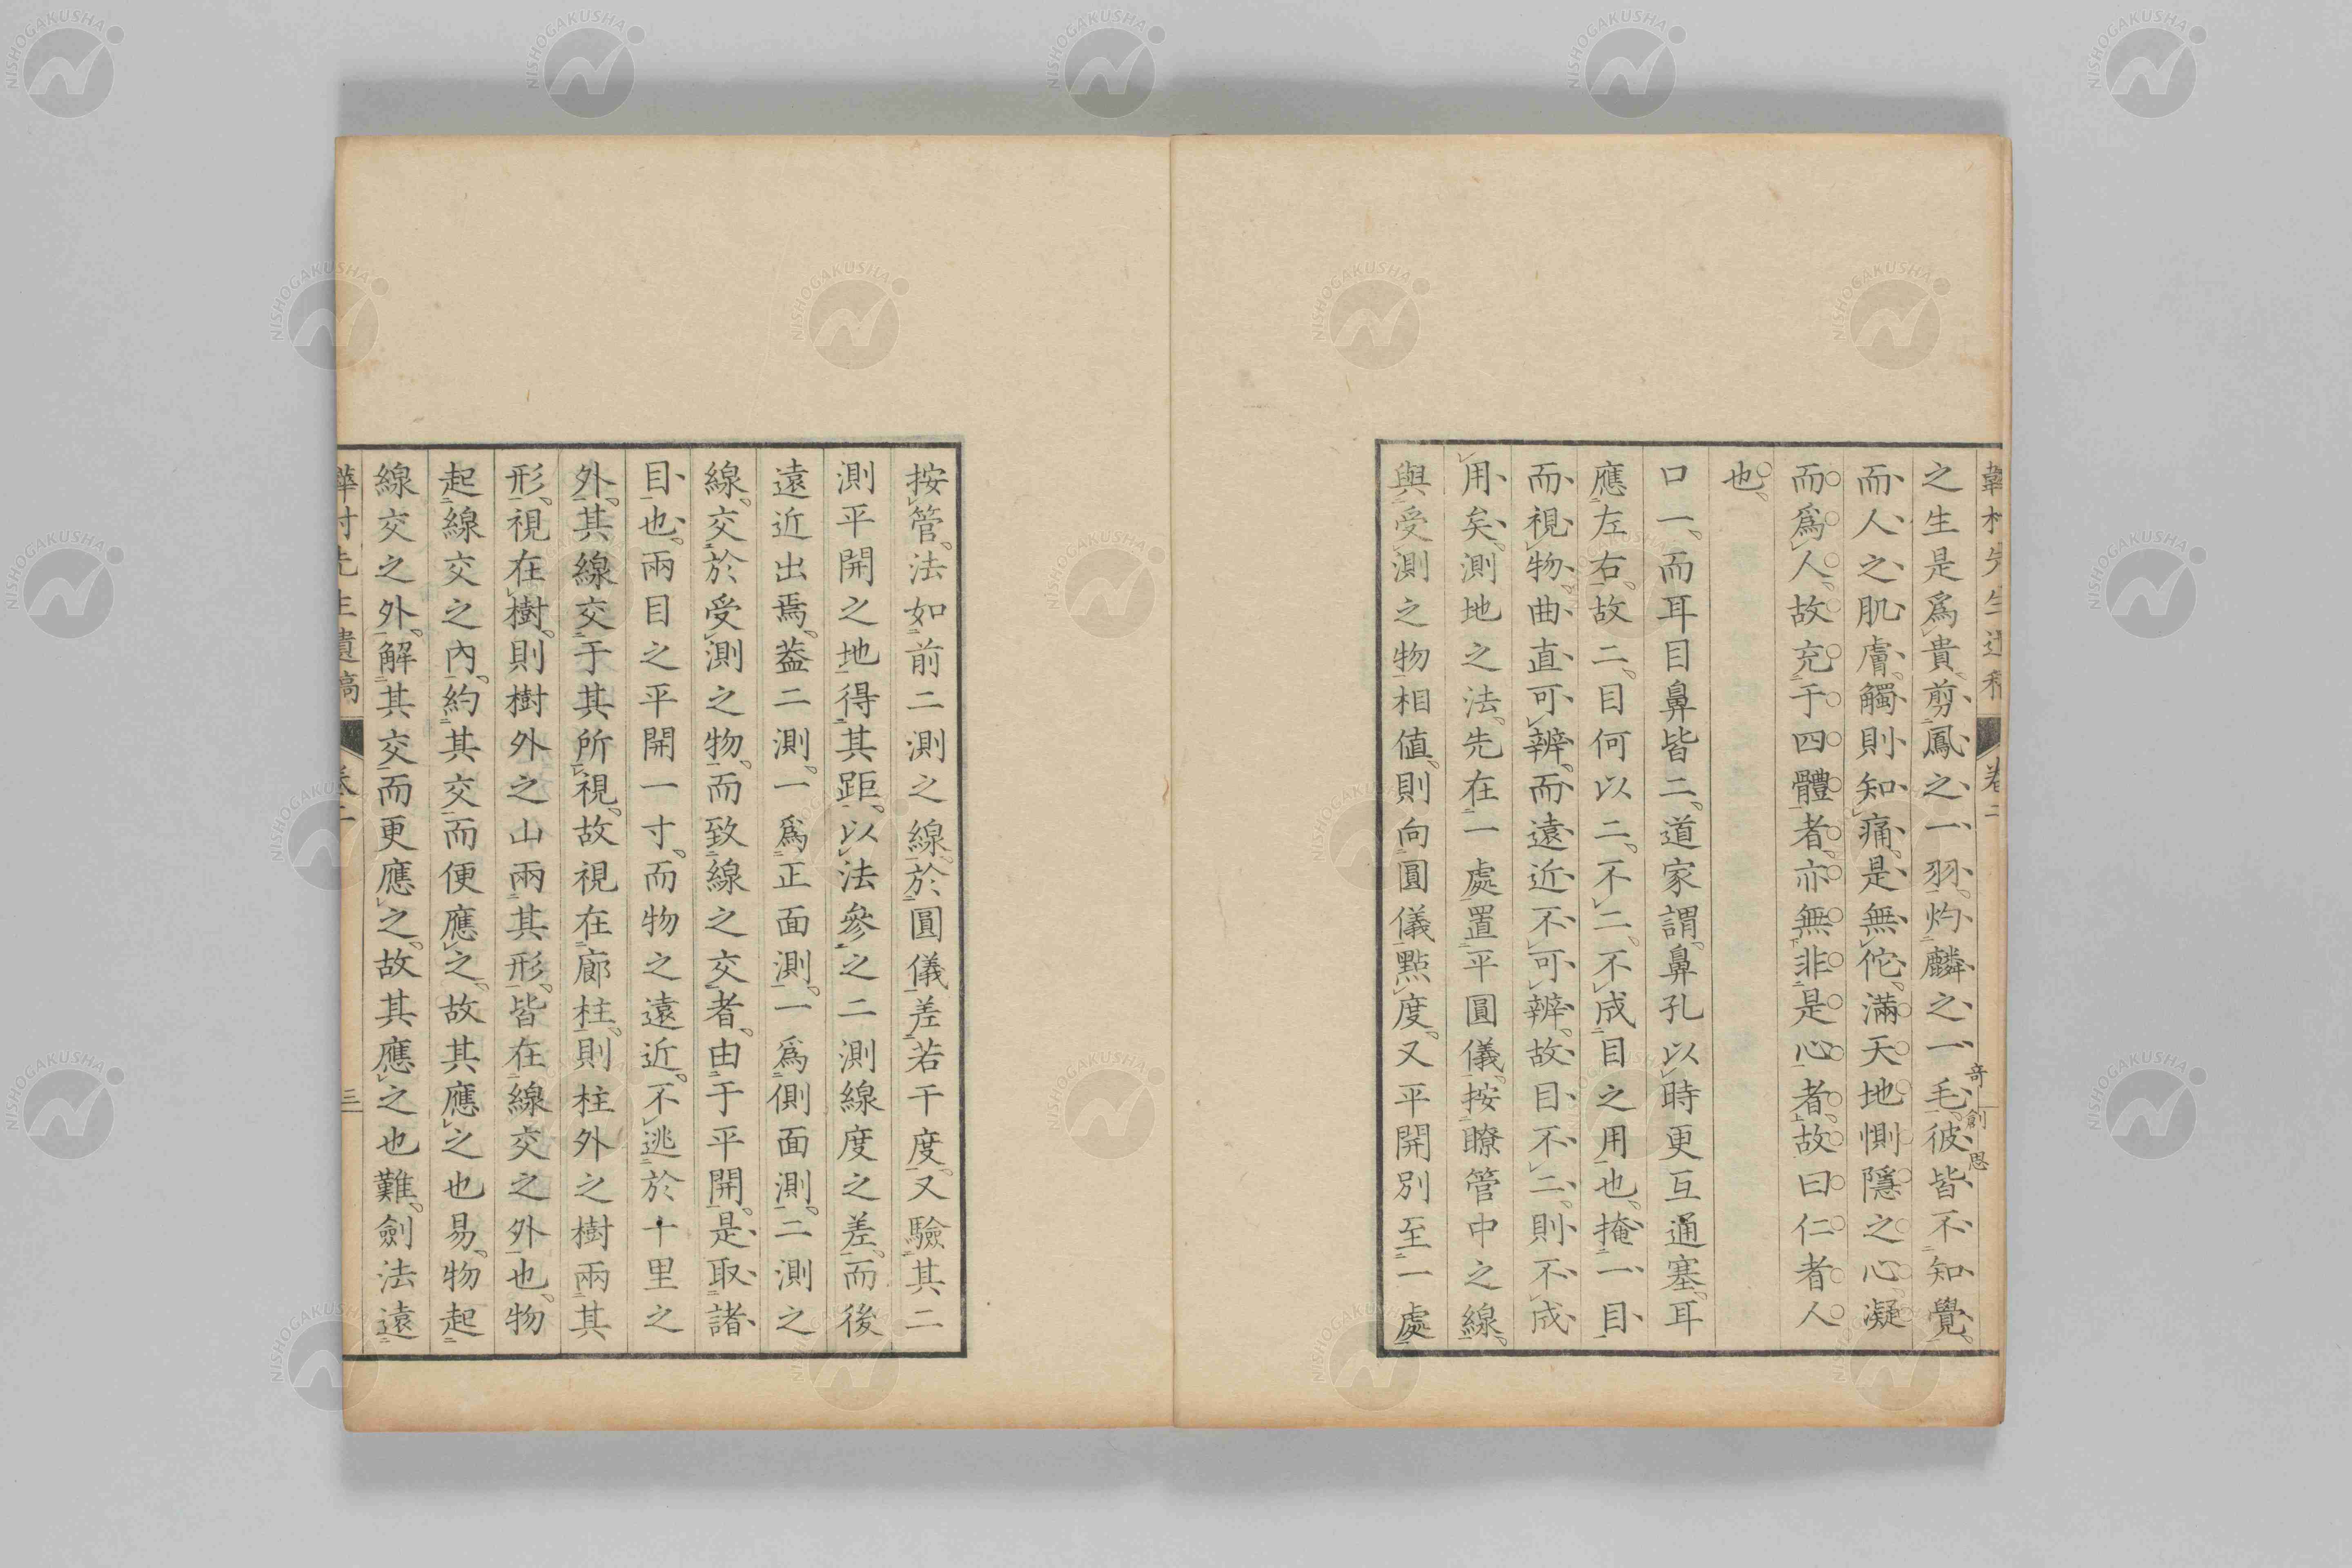 之生是爲貴剪鳳之一羽灼麟之一毛彼皆不知覺
奇創思
而人之肌膚觸則知痛是無佗滿天地惻隱之心凝
而爲人故充于四體者亦無非是心者故曰仁者人
也
口一而耳目鼻皆二道家謂鼻孔以時更互通塞耳
應左右故二目何以二不二不成目之用也掩一目
而視物曲直可辨而遠近不可辨故目不二則不成
用矣測地之法先在一處置平圓儀按瞭管中之線
與受測之物相値則向圓儀點度又平開別至一處
按管法如前二測之線於圓儀差若干度又驗其二
測平開之地得其距以法參之二測線度之差而後
遠近出焉葢二測一爲正面測一爲側面測二測之
線交於受測之物而致線之交者由于平開是取諸
目也兩目之平開一寸而物之遠近不逃於十里之
外其線交于其所視故視在廊柱則柱外之樹兩其
形視在樹則樹外之山兩其形皆在線交之外也物
起線交之內約其交而便應之故其應之也易物起
線交之外解其交而更應之故其應之也難劍法遠
卷二
三
NISHOGAKUSHA